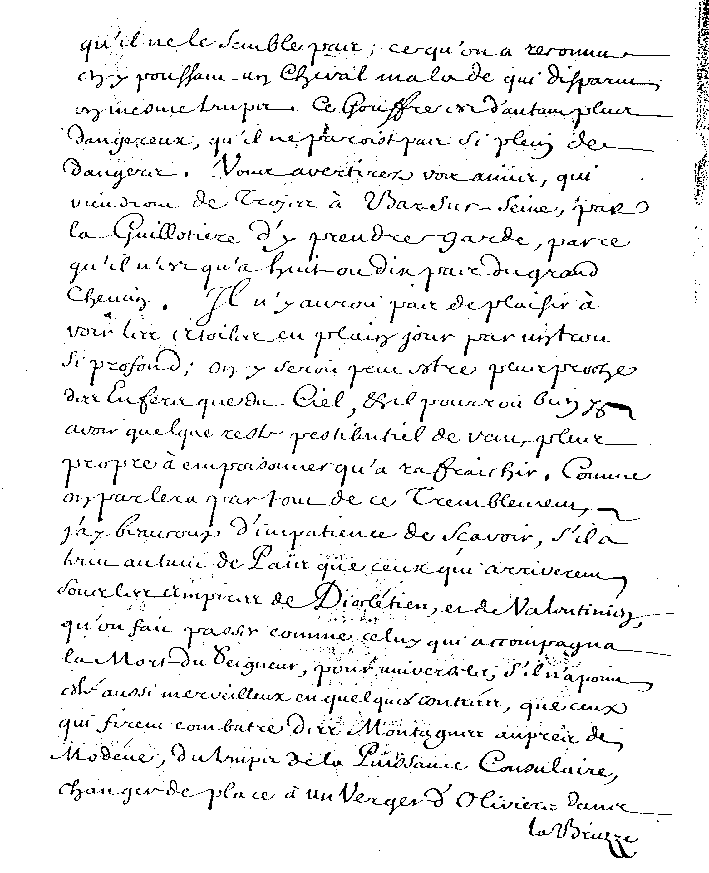 qu'il ne le semble pas; ce qu'on a reconnu
en y poussant un Cheval malade qui disparut
en mesme temps. Ce Gouffre est d'autant plus
dangereux, qu'il ne paroist pas si plein de
dangers. Vous avertirez vos amis, qui
viendront de Troyes à Bar sur Seine, par
la Guillotiere d'y prendre garde, parce
qu'il n'est qu'à huit ou dix pas du grand
Chemin. Il n'y auroit pas de plaisir à
voir les étoiles en plain jour par un trou
si profond; on y seroit peut estre plus proche
des Enfers que du Ciel, & il pourroit bien y
avoir quelque reste pestilentiel de vent plus
propre à empoisonner qu'a rafraichir. Comme
on parlera par tout de ce Tremblement,
j'ay beaucoup d'impatience de Scavoir, s'il a
tenu autant de Païs que ceux qui arriverent
sous les Empires de Dioclétien, et de Valentinien,
qu'on fait passer comme celuy qui accompagna
la Mort du Seigneur, pour universels, s'il n'a point
esté aussi merveilleux en quelques contrées, que ceux
qui firent combatre des Montagnes auprés de
Modéne, du temps de la Puissance Consulaire,
changer de place à un Verger d'Oliviers dans
la Bruzze